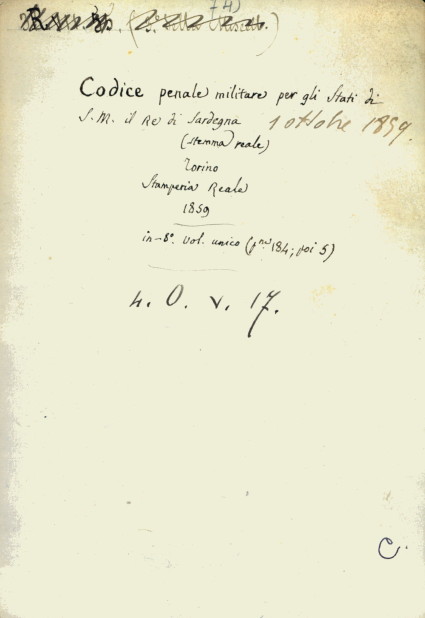 74)
Codice penale militare per gli Stati di
S. M. il Re di Sardegna 1 ottobre 1859.
(stemma reale)
Torino
Stamperia Reale
1859
in-8º. vol. unico (p.ne 184; poi 5)
4. O. V. 17.
C.